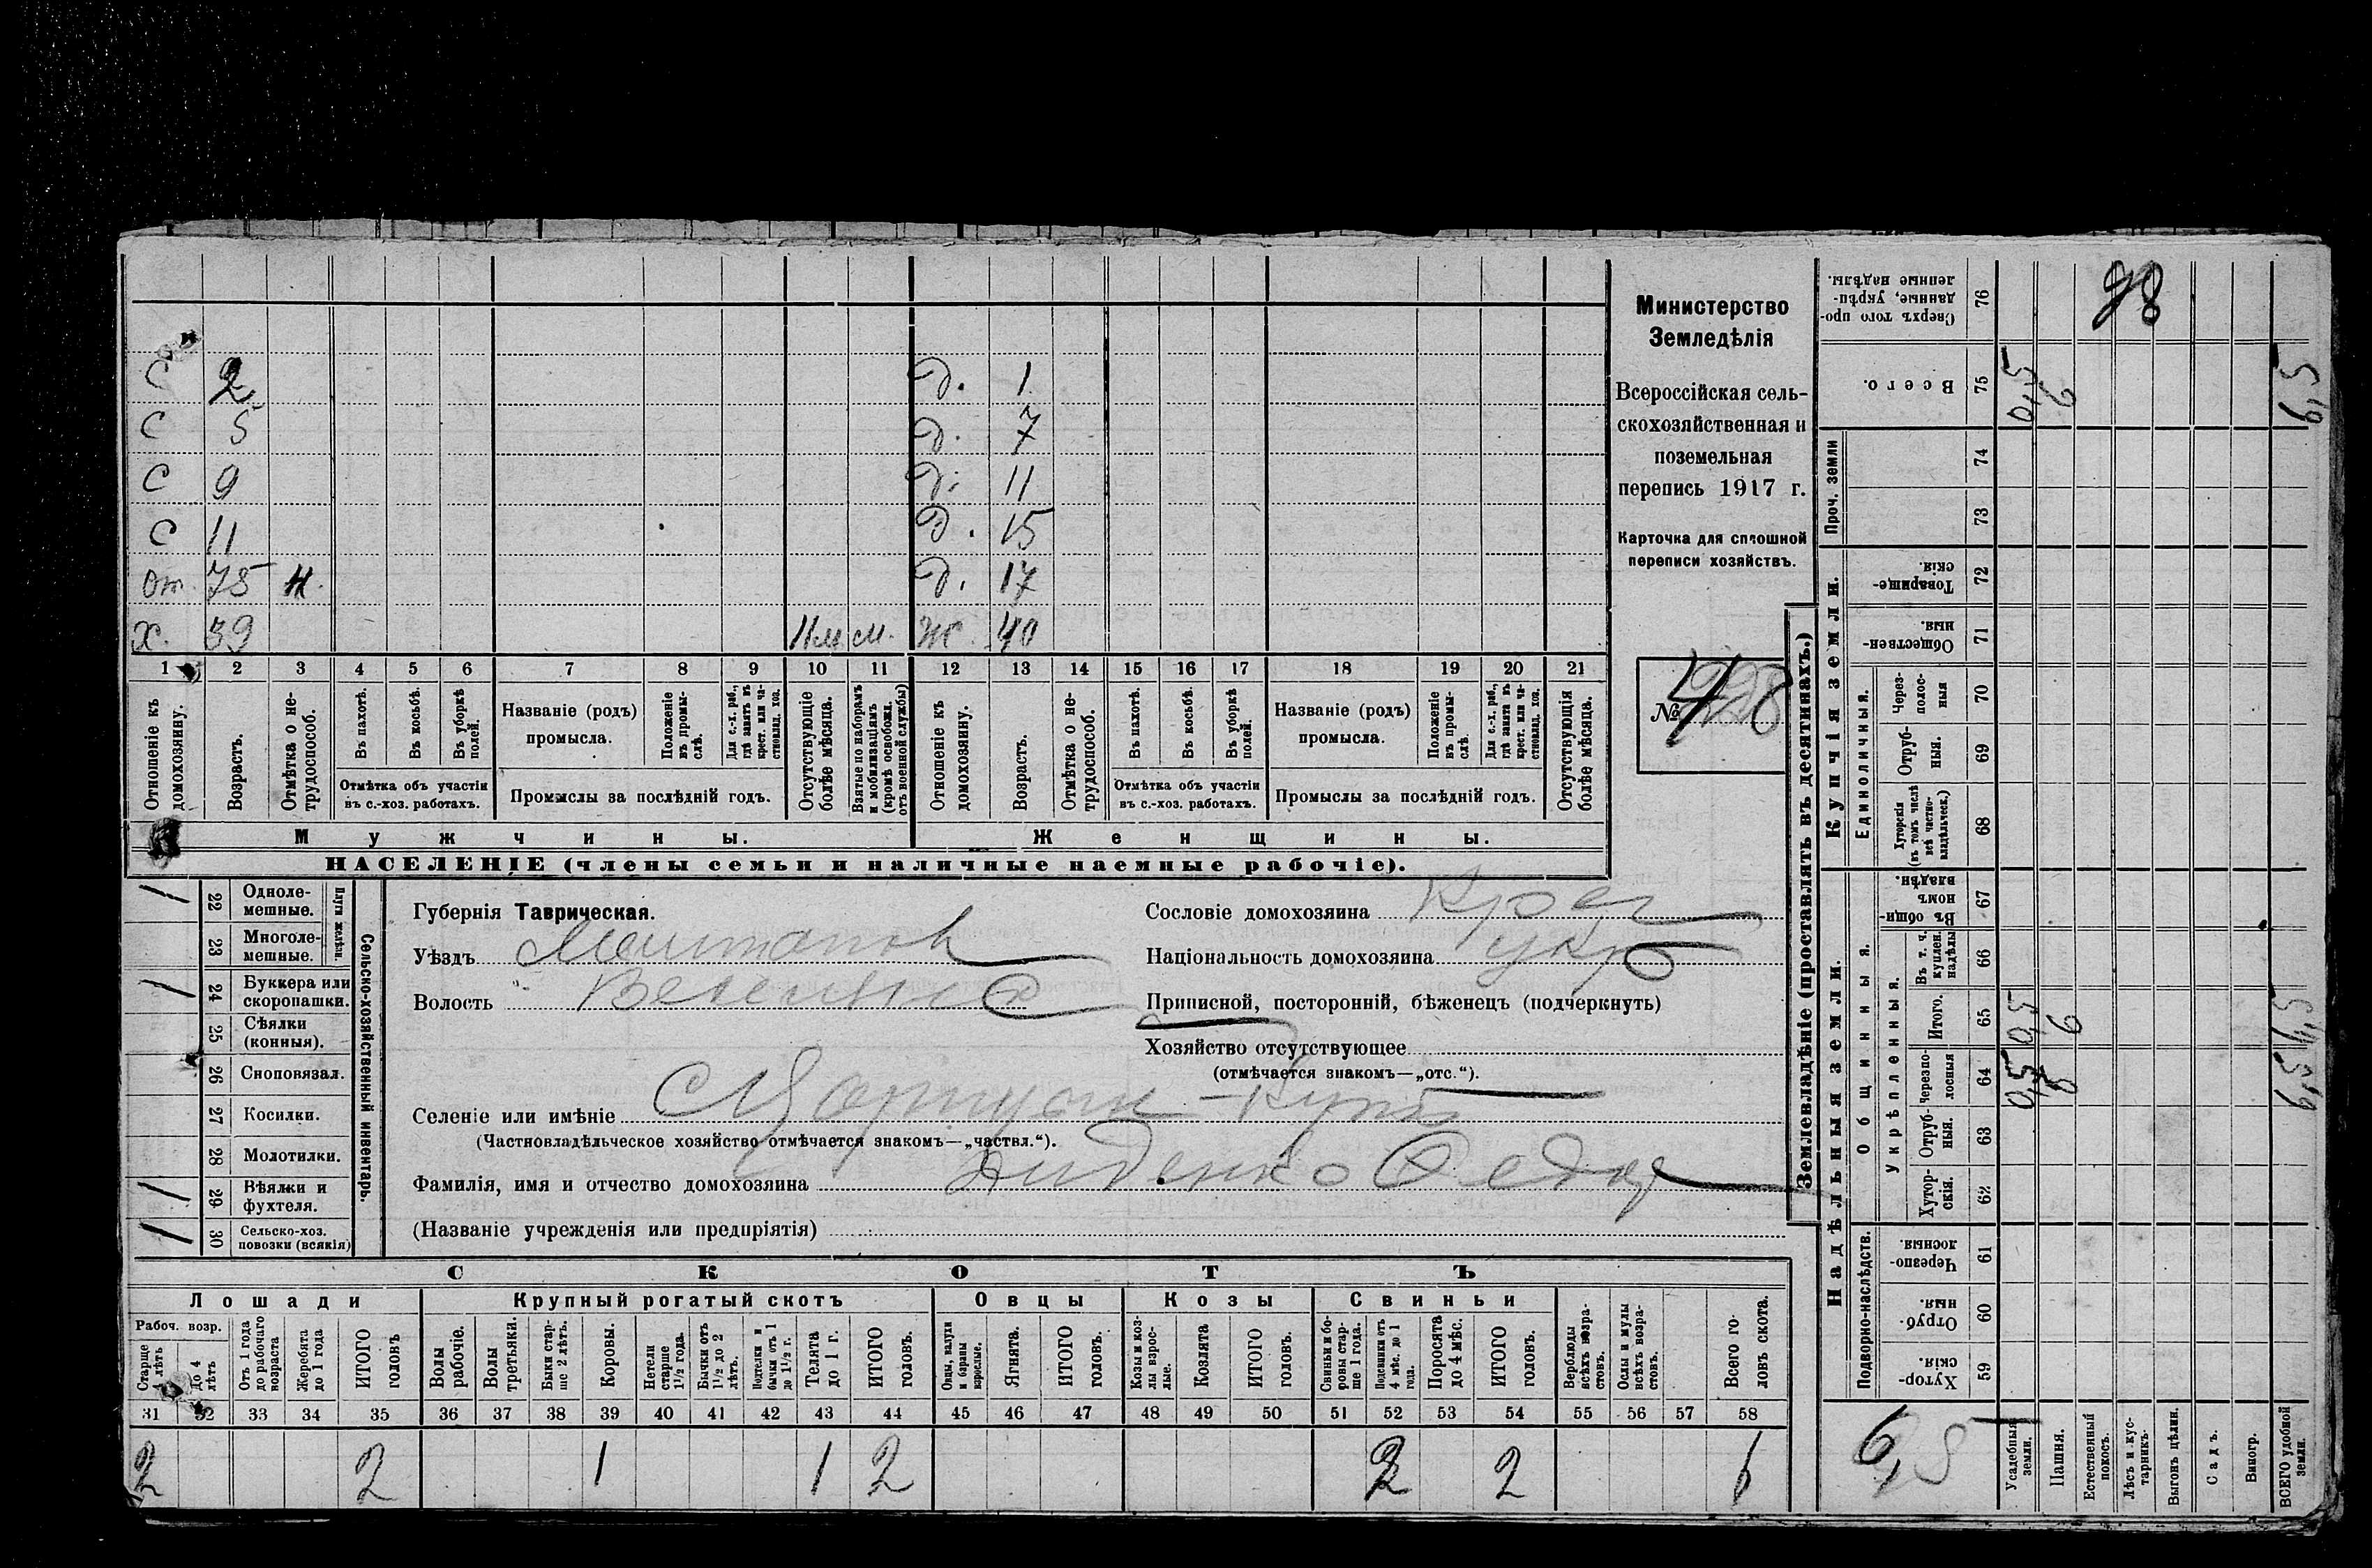 С 2 Д. 1
С 5 Д. 7
С 9 Д. 11
С 11 Д. 15
От. 75 Н. Д. 17
Х. 39 м. Ж. 40
1 2 3 4 5 6 7 8 9 10 11 12 13 14 15 16 17 18 19 20 21
Отношеніе къ домохозяину.
Возрастъ.
Отмѣтка о нетрудоспособ.
Въ пахотѣ.
Въ косьбѣ.
Въ уборкѣ полей.
Отмѣтка объ участіи
въ с.-хоз. работахъ.
Названіе (родъ)
промысла.
Положеніе въ промыслѣ.
Для с.-х. раб., гдѣ занятъ въ крест. или частновлад. хоз.
Промыслы за послѣдній годъ.
Отсутствующіе болѣе мѣсяца.
Взятые по наборамъ и мобилизаціямъ (кромѣ освобожд. отъ военной службы)
Отношеніе къ домохозяину.
Возрастъ.
Отмѣтка о нетрудоспособ.
Въ пахотѣ.
Въ косьбѣ.
Въ уборкѣ полей.
Отмѣтка объ участіи
въ с.-хоз. работахъ.
Названіе (родъ)
промысла.
Положеніе въ промыслѣ.
Для с.-х. раб., гдѣ занята въ крест. или частновлад. хоз.
Промыслы за послѣдній годъ.
Отсутствующія болѣе мѣсяца.
Мужчины.
Женщины.
НАСЕЛЕНІЕ (члены семьи и наличные наемные рабочіе).
Министерство
Земледѣлія
Всероссійская сель-
скохозяйственная и
поземельная
перепись 1917 г.
Карточка для сплошной
переписи хозяйствъ.
№
Сельско-хозяйственный инвентарь.
Плуги желѣзн.
/ 22 Одноле-
мешные.
23 Многоле-
мешные.
/ 24 Буккера или
скоропашки.
25 Сѣялки
(конныя).
26 Сноповязал.
27 Косилки.
28 Молотилки.
/ 29 Вѣялки и
фухтеля.
/ 30 Сельско-хоз.
повозки (всякія)
Губернія Таврическая.
Уѣздъ
Волость
Сословіе домохозяина
Національность домохозяина укр
Приписной, посторонній, бѣженецъ (подчеркнуть)
Хозяйство отсутствующее
(отмѣчается знакомъ—„отс.“).
Селеніе или имѣніе
(Частновладѣльческое хозяйство отмѣчается знакомъ—„частвл.“).
Фамилія, имя и отчество домохозяина Диденко
(Названіе учрежденія или предпріятія)
СКОТЪ
Лошади
Крупный рогатый скотъ
Овцы
Козы
Свиньи
Рабоч. возр.
Старше 4 лѣтъ
До 4 лѣтъ
Отъ 1 года до рабочаго возраста
Жеребята до 1 года
ИТОГО головъ
Волы рабочіе.
Волы третьяки.
Быки старше 2 лѣтъ.
Коровы.
Нетели старше 1½ года.
Бычки отъ 1½ до 2 лѣтъ.
Подтелки и бычки отъ 1 до 1½ г.
Телята до 1 г.
ИТОГО головъ.
Овцы, валухи и бараны взрослые.
Ягнята.
ИТОГО головъ.
Козы и козлы взрослые.
Козлята
ИТОГО головъ.
Свиньи и боровы старше 1 года.
Подсвинки отъ 4 мѣс. до 1 года.
Поросята до 4 мѣс.
ИТОГО головъ.
Верблюды всѣхъ возрастовъ.
Ослы и мулы всѣхъ возрастовъ.
Всего головъ скота.
31 32 33 34 35 36 37 38 39 40 41 42 43 44 45 46 47 48 49 50 51 52 53 54 55 56 57 58
2 2 1 1 2 2 2 6
Землевладѣніе (проставлять въ десятинахъ.)
Купчія земли.
Надѣльныя земли.
Сверхъ того проданные, укрѣпленные надѣлы. 76
98
Всего. 75
Проч. земли 74
73
Товарищескія. 72
Общественныя. 71
Единоличныя.
Черезполосныя 70
Отрубныя. 69
Хуторскія (въ томъ числѣ всѣ частновладѣльческ.) 68
Общинныя.
Въ общинномъ владѣн. 67
Укрѣпленныя.
Въ т. ч. куплен. надѣлы 66
Итого. 65
Черезполосныя 64
Отрубныя. 63
Хуторскія. 62
Подворно-наслѣдств.
Черезполосныя. 61
Отрубныя. 60
Хуторскія. 59
6,5
Усадебныя земли.
Пашня.
Естественный покосъ.
Лѣсъ и кустарникъ.
Выгонъ цѣлин.
Садъ.
Виногр.
ВСЕГО удобной земли.